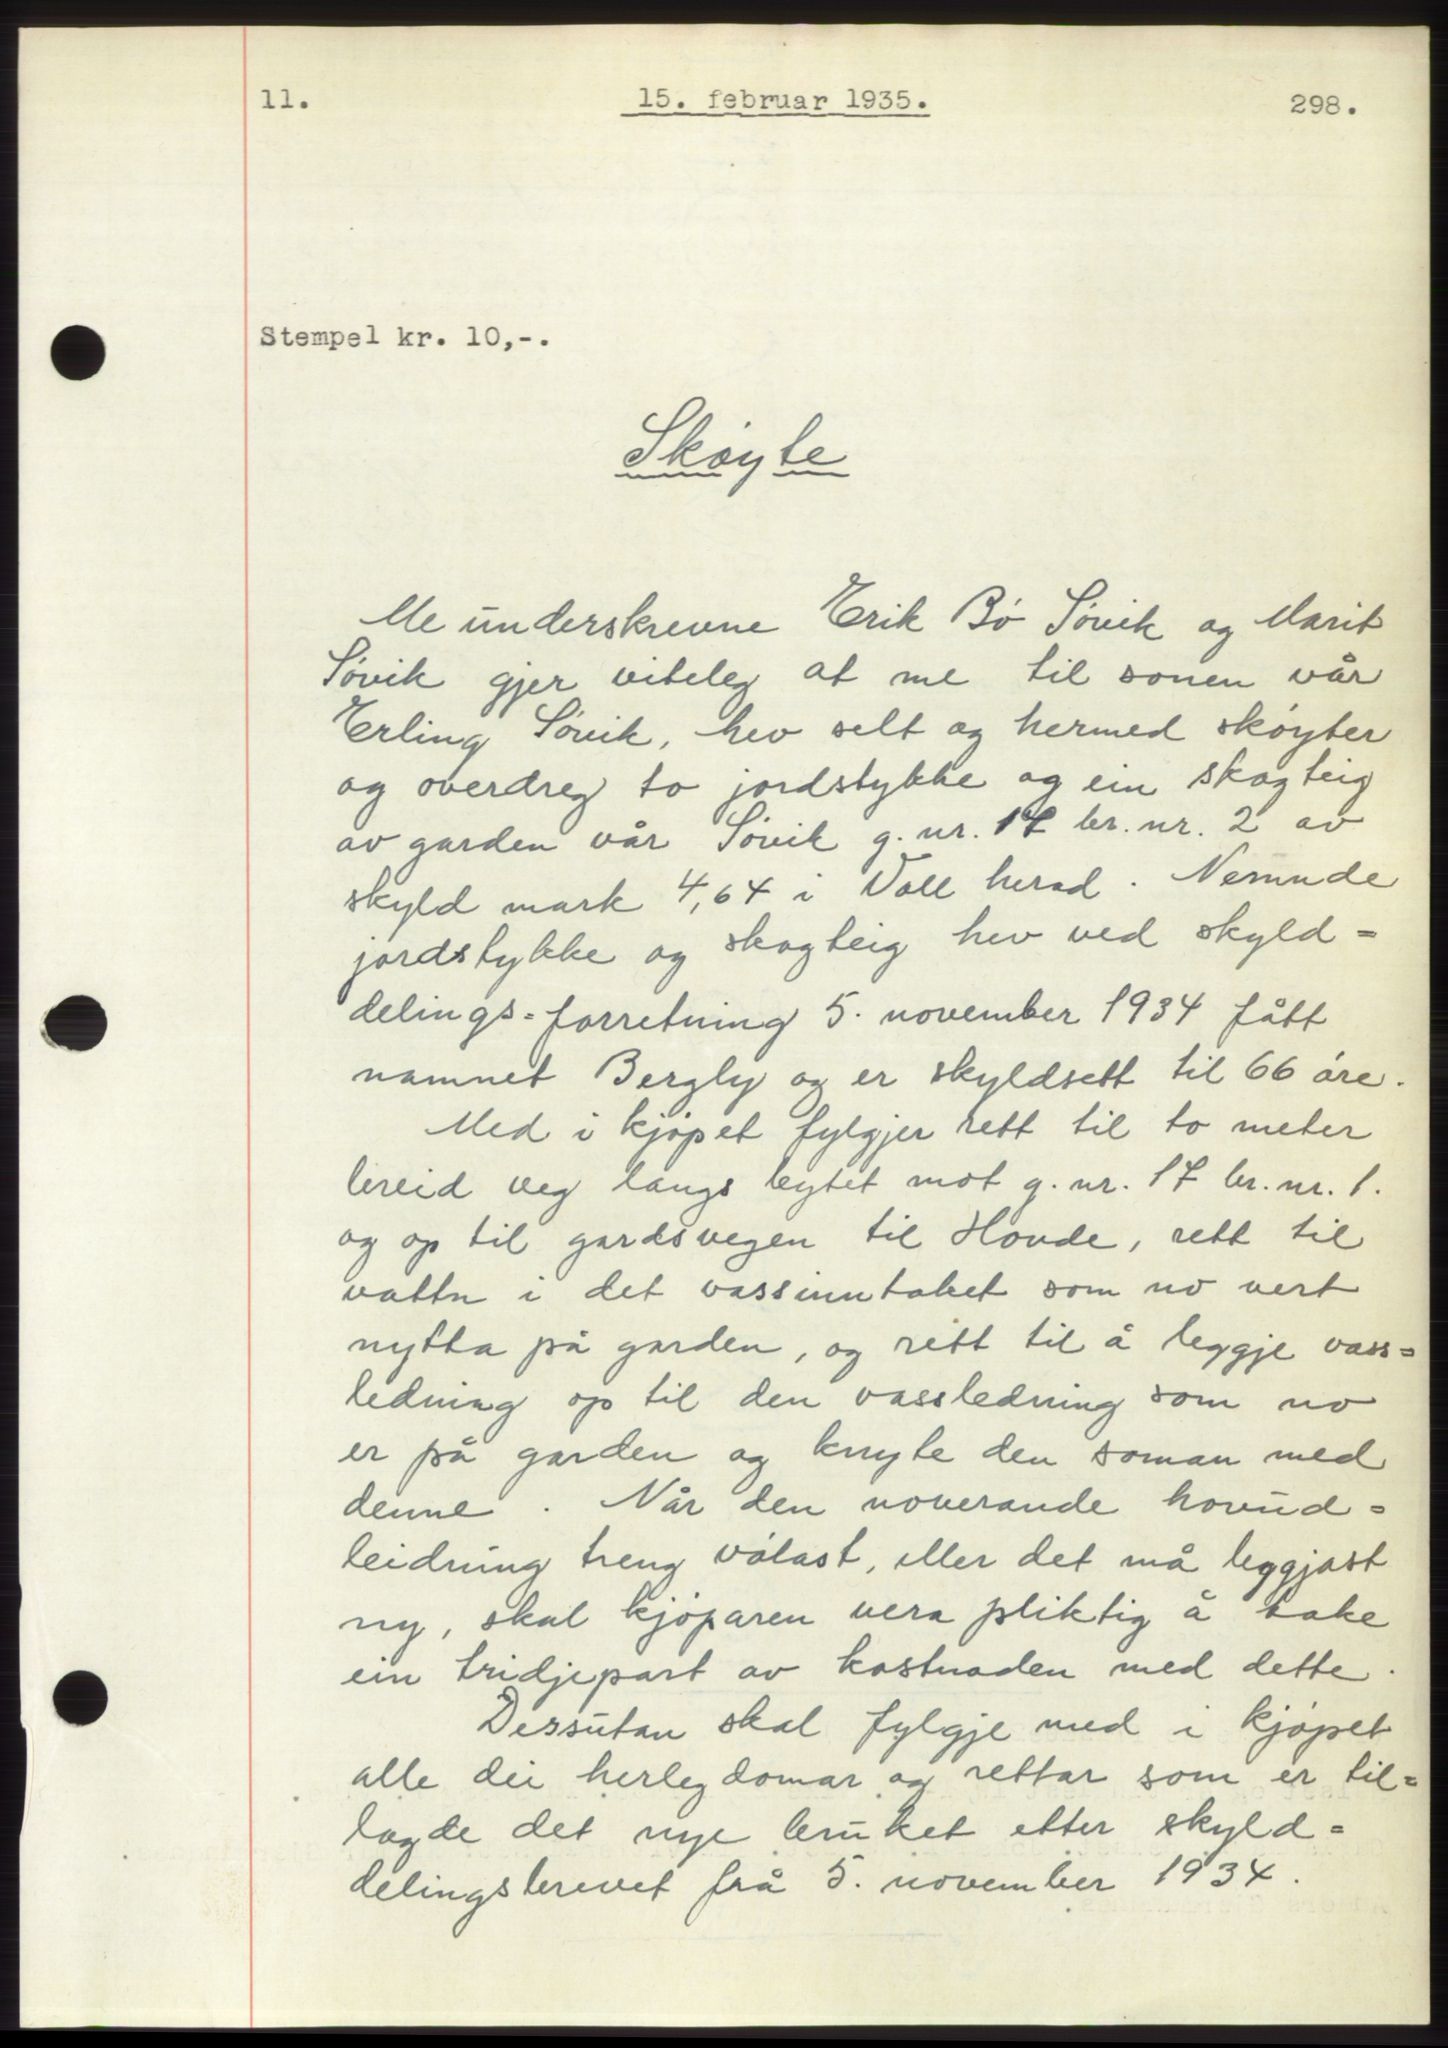 11. 15. februar 1935. 298.
Stempel kr. 10,-.
Skøyte
Me underskrevne Erik Bø Søvik og Marit
Søvik gjer viteleg at me til sonen vår
Erling Søvik, hev selt og hermed skøyter
og overdreg to jordstykke og ein skogteig
av garden vår Søvik g. nr. 17 br. nr. 2 av
skyld mark 4,64 i Voll herad. Nemnde
jordstykke og skogteig hev ved skyld=
delings=forretning 5. november 1934 fått
namnet Bergly og er skyldsett til 66 øre.
Med i kjøpet fylgjer rett til to meter
breid veg langs bytet mot g. nr. 17 br. nr. 1.
og op til gardsvegen til Hovde, rett til
vattn i det vassinntaket som no vert
nytta på garden, og rett til å leggje vass=
ledning op til den vassledning som no
er på garden og knyte den saman med
denne. Når den noverande hovud=
leidning treng vølast, eller det må leggjast
ny, skal kjøparen vera pliktig å take
ein tridjepart av kostnaden med dette.
Dessutan skal fylgje med i kjøpet
alle dei herlegdomar og rettar som er til=
lagde det nye bruket etter skyld=
delingsbrevet frå 5. november 1934.